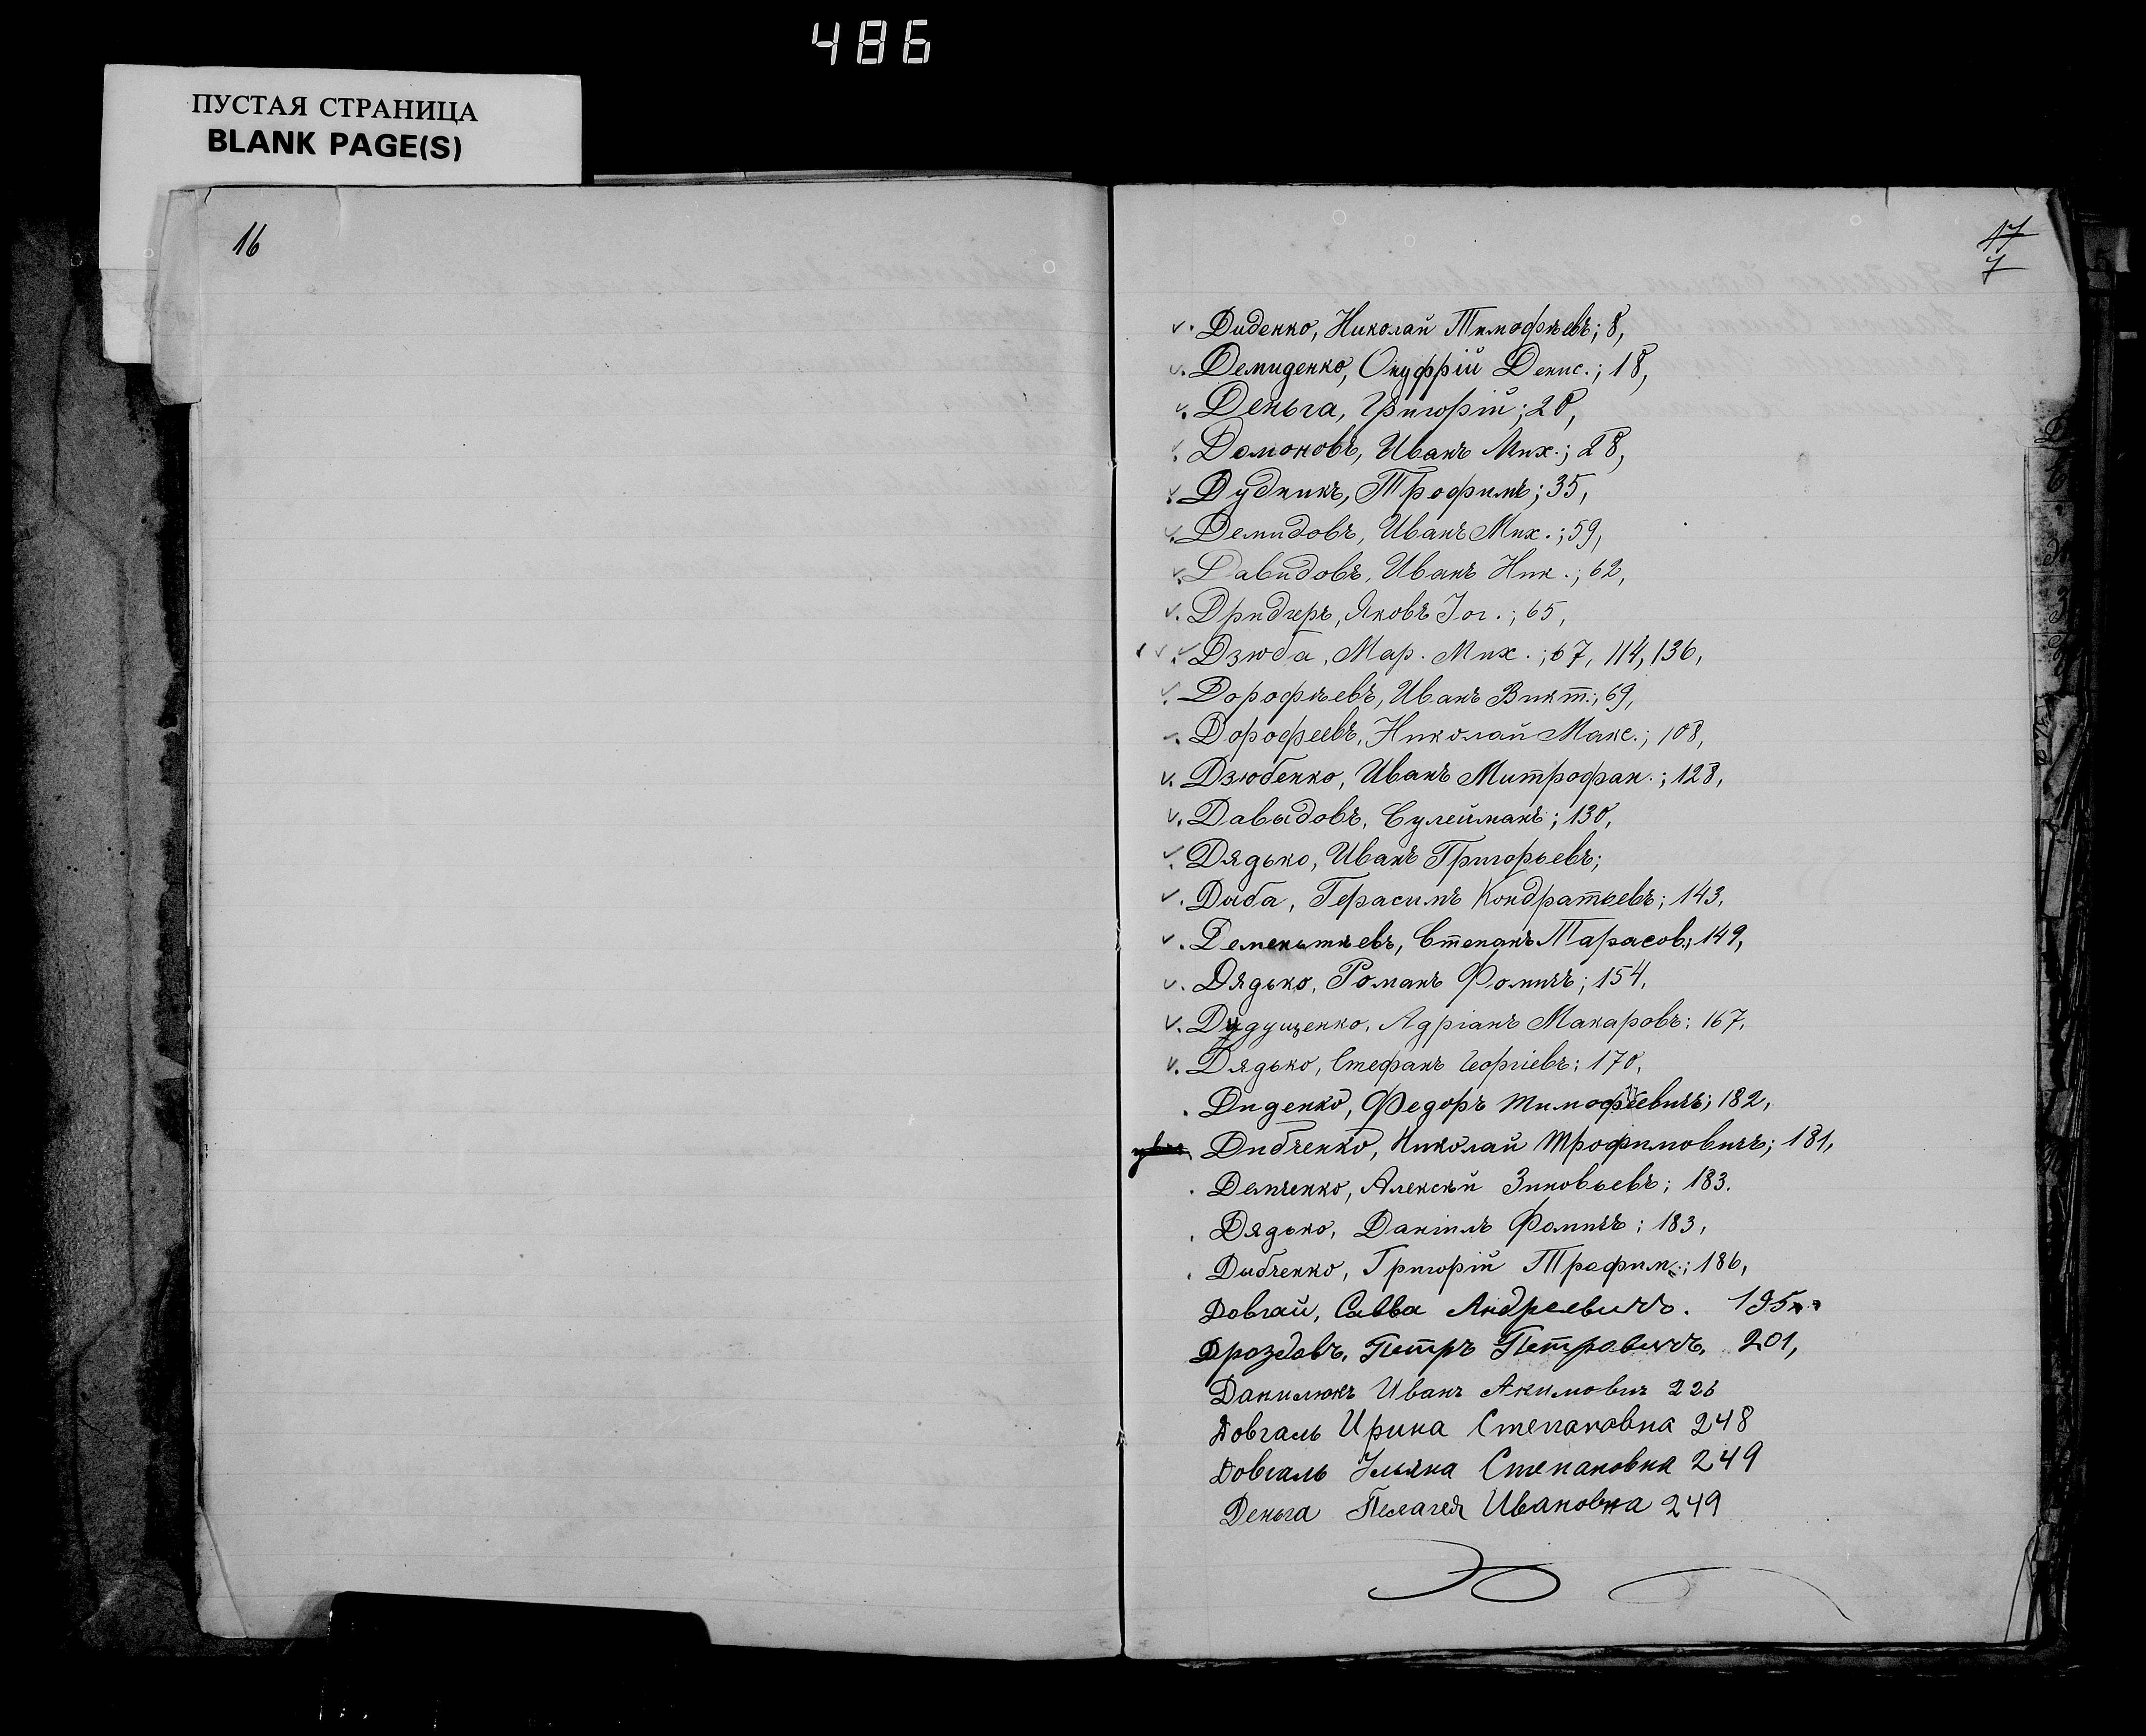 486
ПУСТАЯ СТРАНИЦА
BLANK PAGE(S)
16
17
7
Диденко, Николай Тимофѣевъ; 8,
Демиденко, Онуфрій Денис.; 18,
Деньга, Григорій; 20,
Домоновъ, Иванъ Мих.; 28,
Дудникъ, Трофимъ; 35,
Демидовъ, Иванъ Мих.; 59,
Давидовъ, Иванъ Ник.; 62,
Дридгеръ, Яковъ Іог.; 65,
Дзюба, Мар. Мих.; 67, 114, 136,
Дорофѣевъ, Иванъ Викт.; 69,
Дорофеевъ, Николай Макс.; 108,
Дзюбенко, Иванъ Митрофан.; 128,
Давыдовъ, Сулейманъ; 130,
Дядько, Иванъ Григорьевъ;
Дыба, Герасимъ Кондратьевъ; 143,
Дементьевъ, Степанъ Тарасов.; 149,
Дядько, Романъ Фомичъ; 154,
Дудущенко, Адріанъ Макаровъ; 167,
Дядько, Стефанъ Георгіевъ; 170,
Диденко, Федоръ Тимофѣевичъ; 182,
Дибченко, Николай Трофимовичъ; 181,
Демченко, Алексѣй Зиновьевъ; 183.
Дядько, Даніилъ Фомичъ; 183,
Дыбченко, Григорій Трофим.; 186,
Довгай, Савва Андреевичъ. 195
Дроздовъ, Петръ Петровичъ, 201,
Данилюкъ Иванъ Акимович 226
Довгаль Ирина Степановна 248
Довгаль Ульяна Степановна 249
Деньга Пелагея Ивановна 249